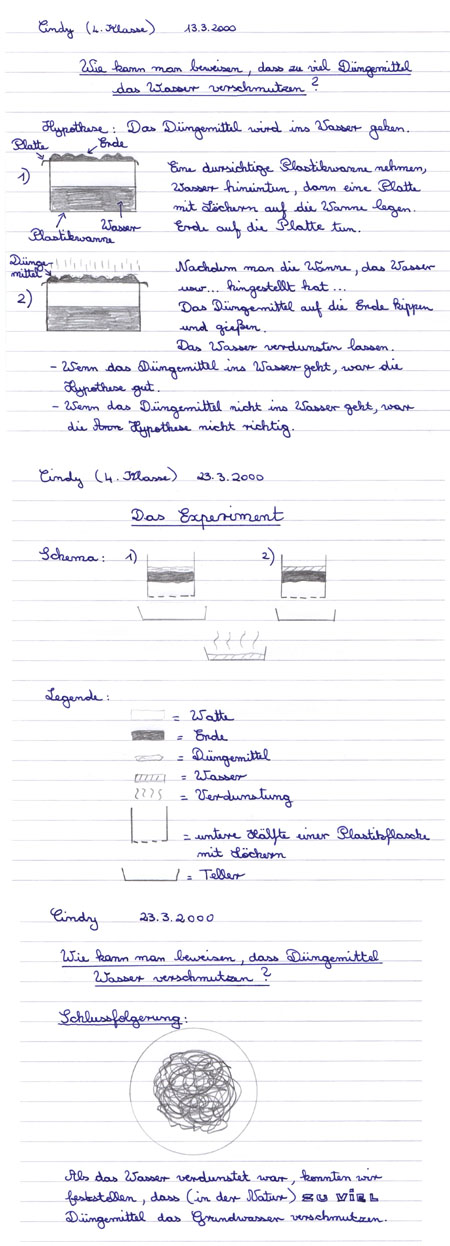 Cindy (4. Klasse) 13.3.2000
Wie kann man beweisen, dass zu viel Düngemittel
das Wasser verschmutzen?
Hypothese: Das Düngemittel wird ins Wasser gehen.
Platte
Erde
1)
Wasser
Plastikwanne
Eine dursichtige Plastikwanne nehmen,
Wasser hineintun, dann eine Platte
mit Löchern auf die Wanne legen.
Erde auf die Platte tun.
Dünge
mittel
2)
Nachdem man die Wanne, das Wasser
usw... hingestellt hat...
Das Düngemittel auf die Erde kippen
und gießen.
Das Wasser verdunsten lassen.
- Wenn das Düngemittel ins Wasser geht, war die
Hypothese gut.
- Wenn das Düngemittel nicht ins Wasser geht, war
die Hypothese nicht richtig.
Cindy (4. Klasse) 23.3.2000
Das Experiment
Schema: 1) 2)
Legende:
= Watte
= Erde
= Düngemittel
= Wasser
= Verdunstung
= untere Hälfte einer Plastikflasche
mit Löchern
= Teller
Cindy 23.3.2000
Wie kann man beweisen, dass Düngemittel
Wasser verschmutzen?
Schlussfolgerung:
Als das Wasser verdunstet war, konnten wir
feststellen, dass (in der Natur) zu viel
Düngemittel das Grundwasser verschmutzen.